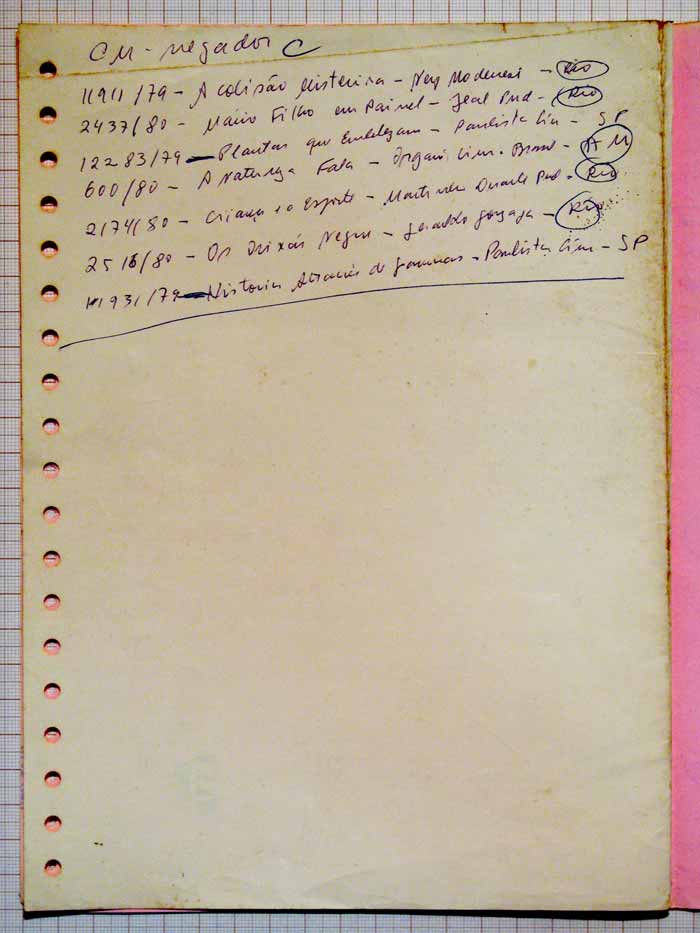 CM - negador C
11911/79 - A colisão Misteriosa - Ney Modenesi - Rio
2437/80 - Mário Filho em Painel - Jeal Prod - Rio
12283/79 - Plantas que Embelezam - Paulista Cin - SP
600/80 - A Natureza Fala - Organi. Cim. Brasil - AM
2174/80 - Criança e o Esporte - Duarte Prod. - Rio
2516/80 - Os Orixás Negros - Geraldo Gonzaga - Rio
11931/79 - História Através de - Paulista Cin - SP